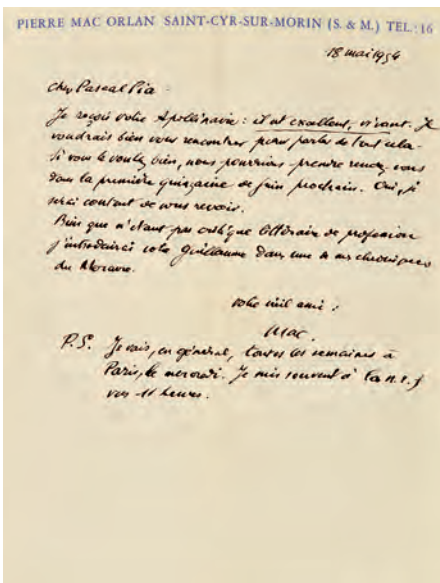 PIERRE MAC ORLAN SAINT-CYR-SUR-MORIN (S. & M.) TEL : 16
18 mai 1954
cher Pascal Pia
Je reçois votre Apollinaire : il est excellent, vivant. Je
voudrais bien vous rencontrer pour parler de tout cela.
Si vous le voulez bien, nous pourrions prendre rendez-vous
dans la première quinzaine de juin prochain. Oui, je
serai content de vous revoir.
Bien que n'étant pas critique littéraire de profession
j'introduirai votre Guillaume dans une de mes chroniques
du
votre vieil ami :
Mac.
P.S. Je vais, en général, toutes les semaines à
Paris, le mercredi. Je suis souvent à la n.r.f
vers 11 heures.